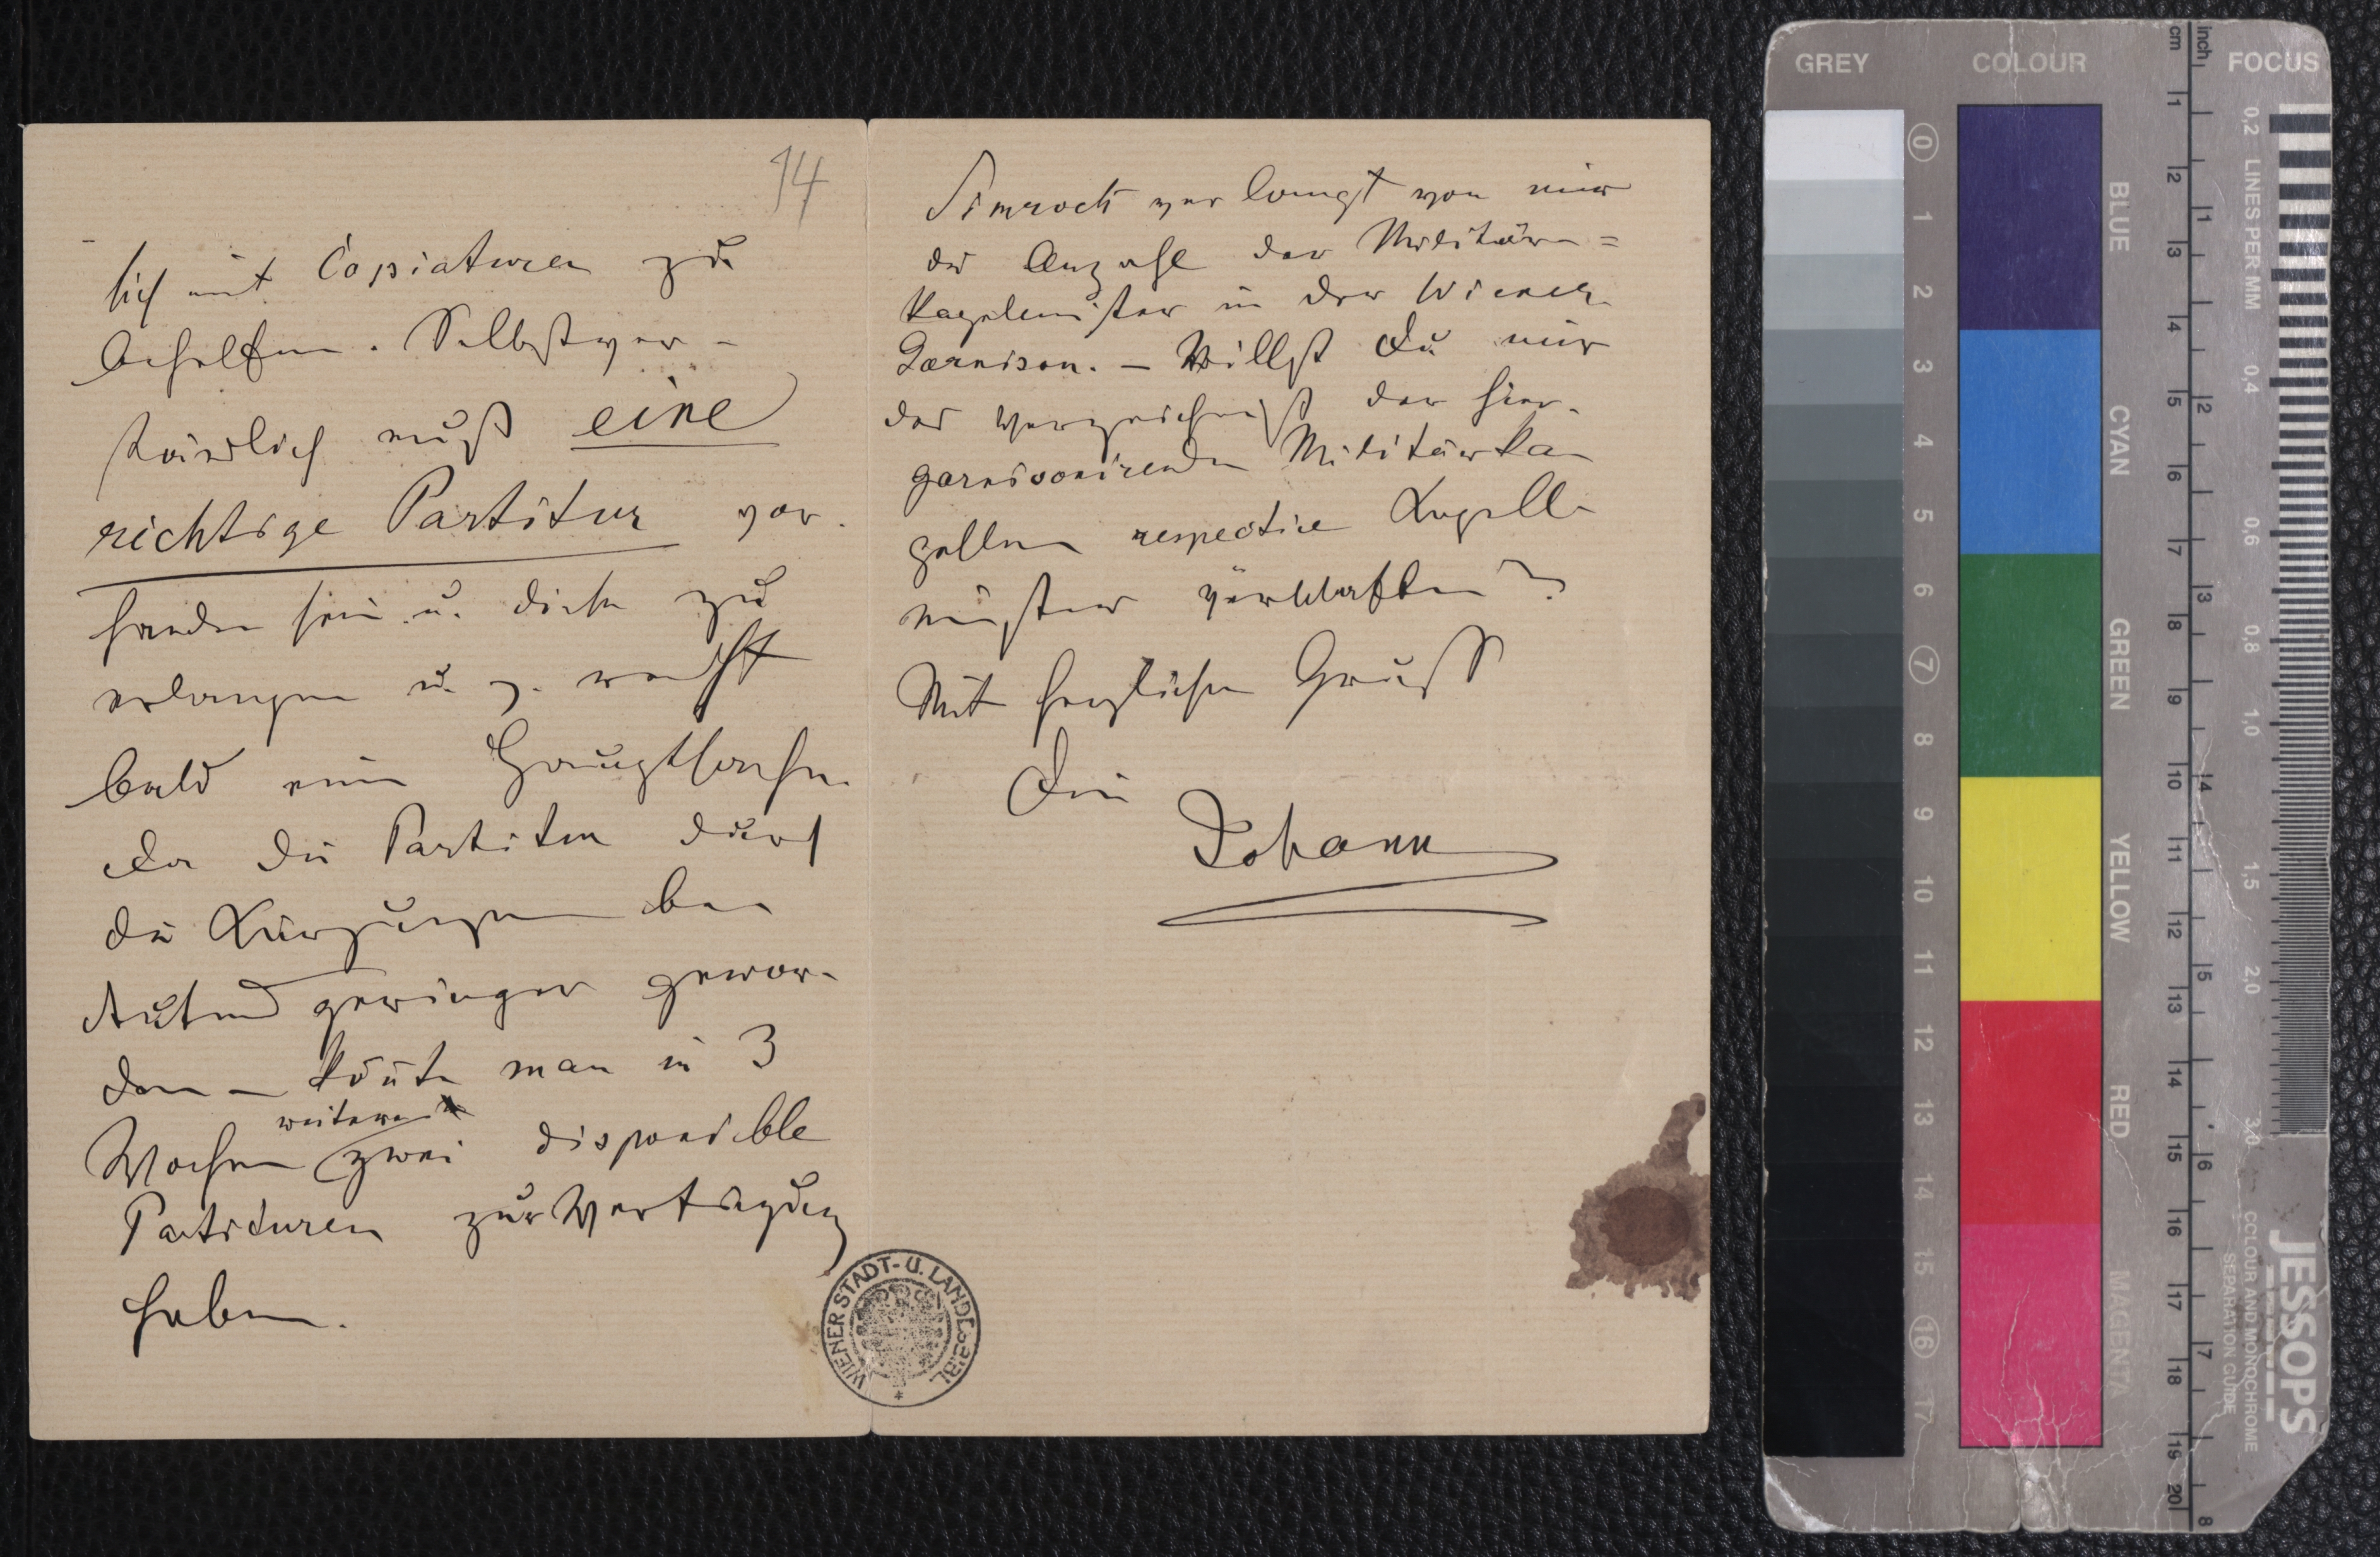 14
sich mit Copiaturen zu
behelfen. Selbstver-
ständlich muß eine
richtige Partitur vor-
handen sein u. diese zu
erlangen u. z.
bald eine Hauptsache.
Da die Partitur durch
die Kürzungen be-
deutend geringer gewor-
den – könte man in 3
weitere
Wochen zwei disponible
Partituren zur Verfügung
haben.
Simrock verlangt von mir
die Anzahl der Militär=
kapelmeister in der Wiener
Garnison. – Willst Du mir
das Verzeichniß der hier
garnisonirenden Militärka-
pellen respective Kapell-
meister verschaffen?
Mit herzlichem Gruß
Dein
Johann
WIENER STADT- U. LANDESBIBL.
GREY
COLOUR
cm
inch
FOCUS
0 1 2 3 4 5 6 7 8 9 10 11 12 13 14 15 16 17
BLUE
CYAN
GREEN
YELLOW
RED
MAGENTA
1 2 3 4 5 6 7 8 9 10 11 12 13 14 15 16 17 18 19 20
1 2 3 4 5 6 7 8
0,2 LINES PER MM 0,4 0,6 0,8 1,0 1,5 2,0 3,0
COLOUR AND MONOCHROME
SEPARATION GUIDE
JESSOPS